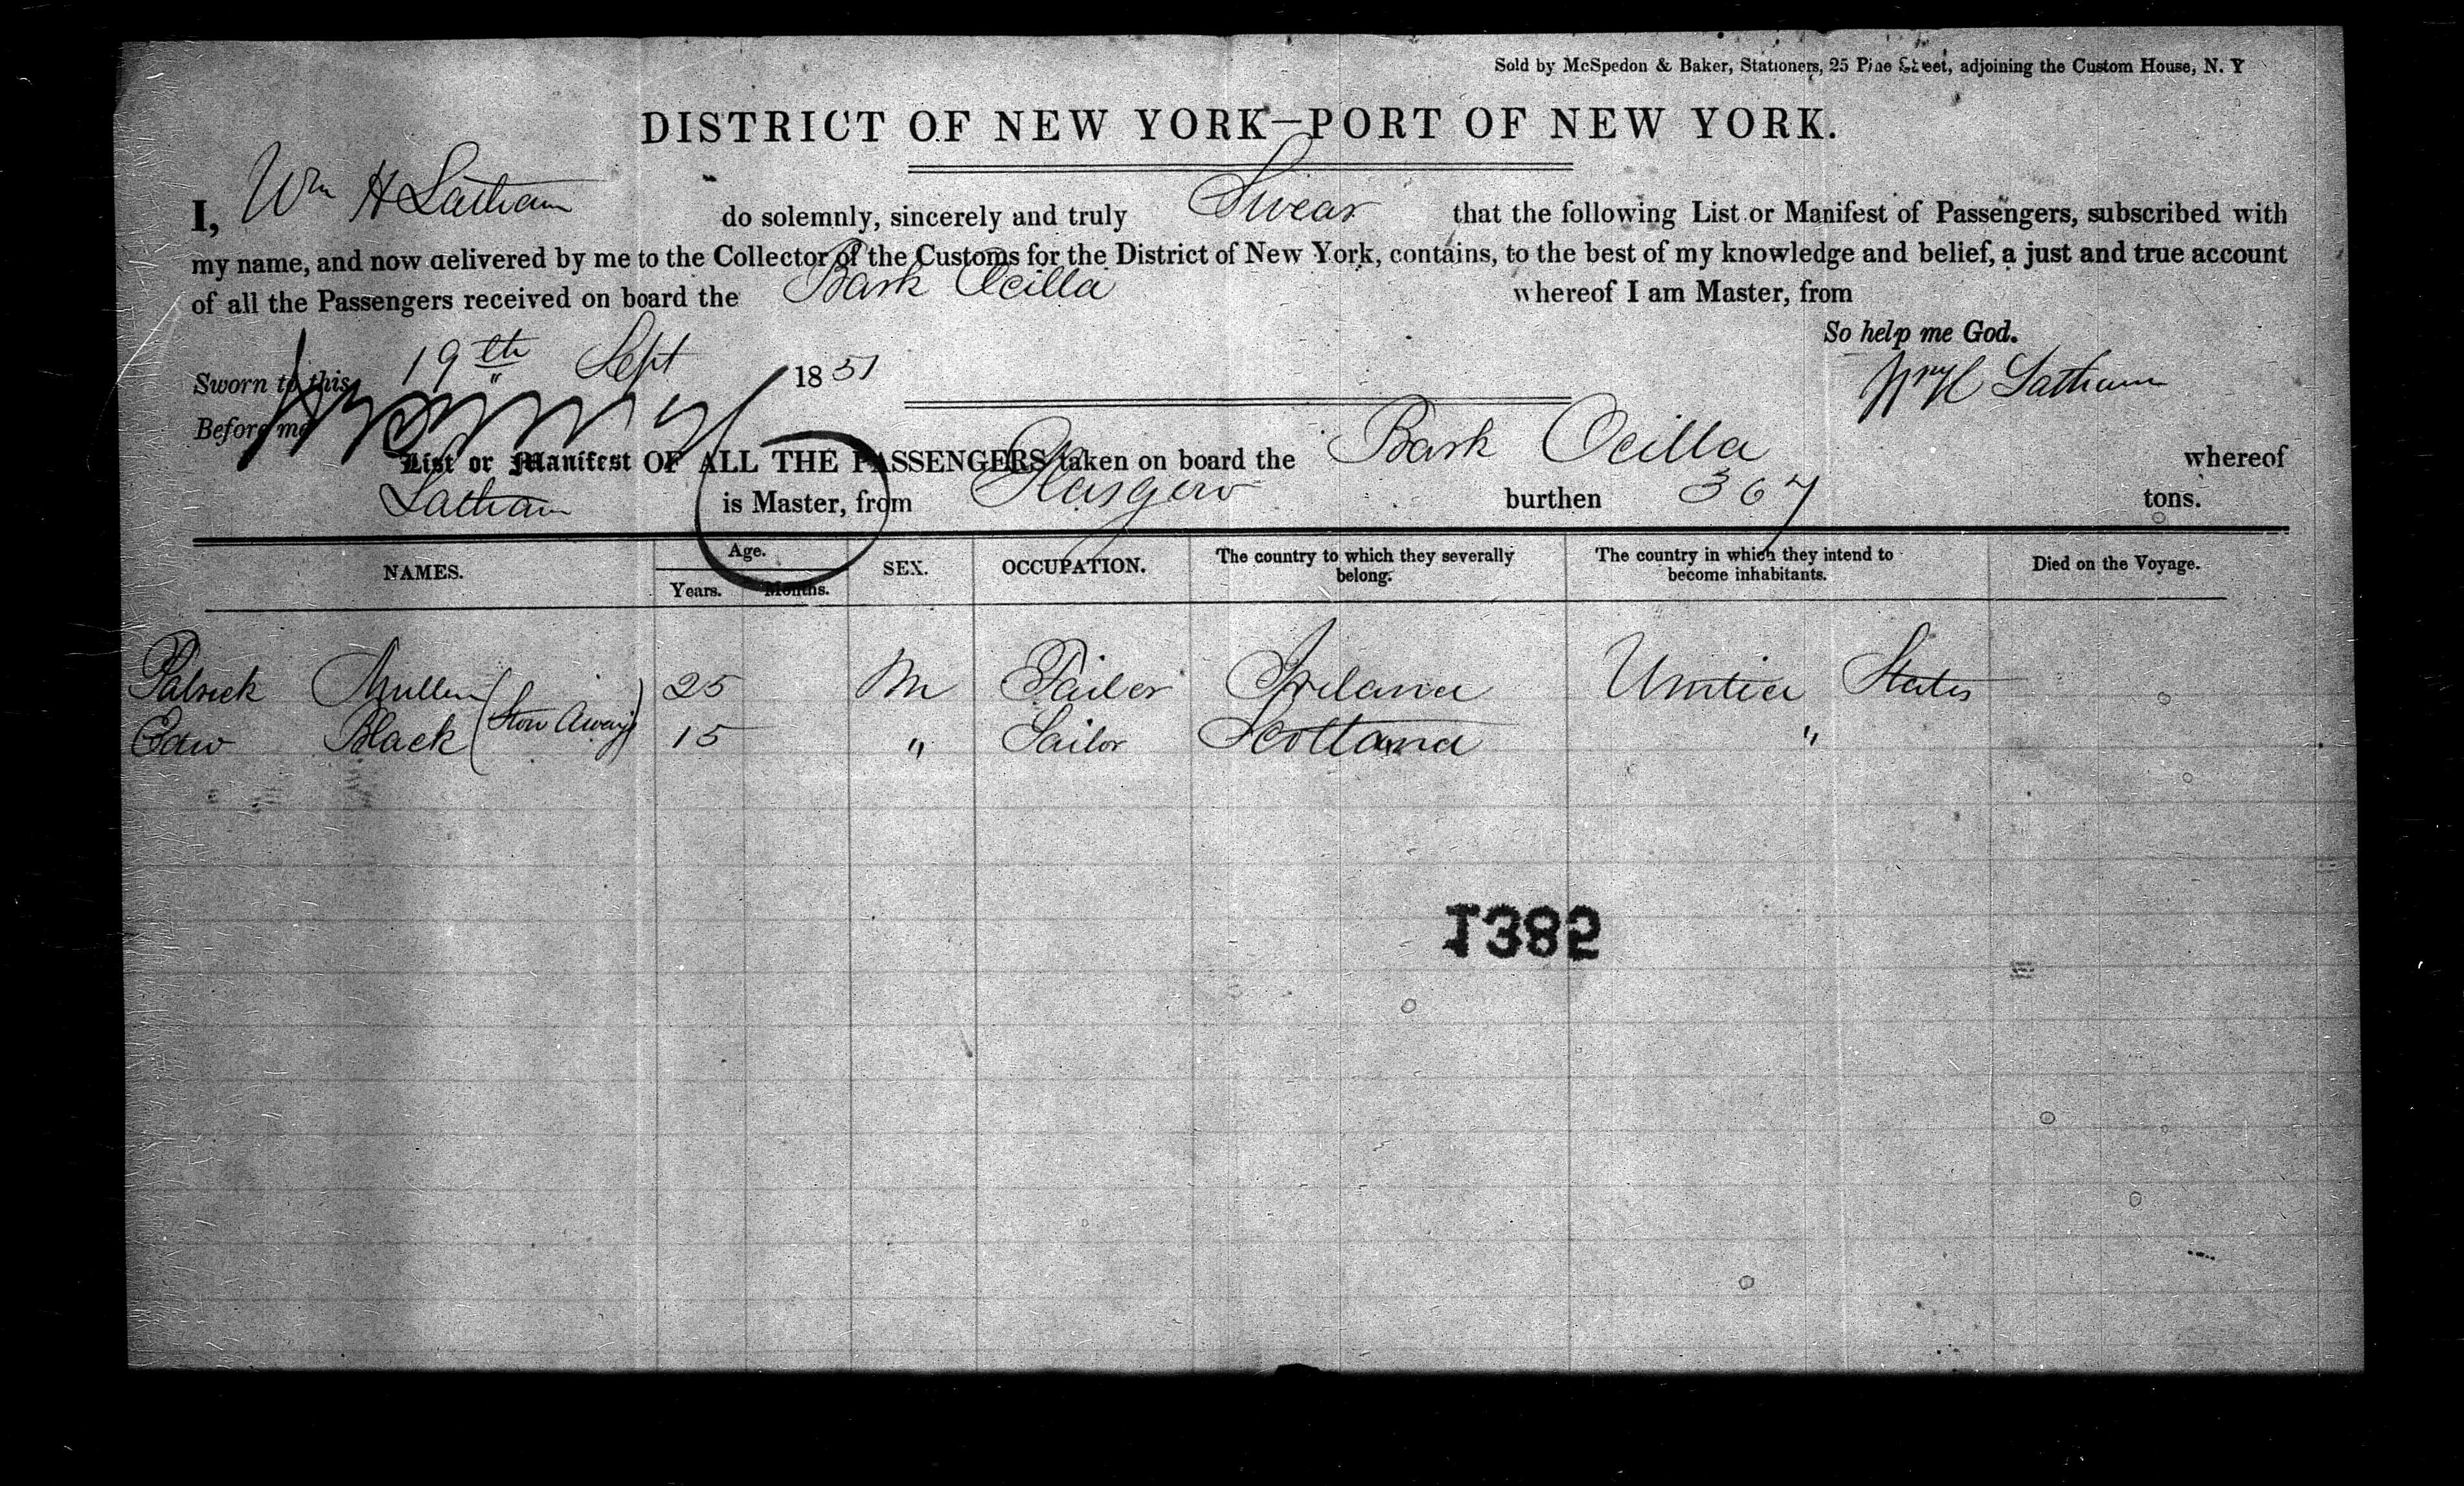 Sold by McSpedon & Baker, Stationers, 25 Pine Street, adjoining the Custom House, N. Y
DISTRICT OF NEW YORK—PORT OF NEW YORK.
I, Wm H Latham do solemnly, sincerely and truly Swear that the following List or Manifest of Passengers, subscribed with
my name, and now delivered by me to the Collector of the Customs for the District of New York, contains, to the best of my knowledge and belief, a just and true account
of all the Passengers received on board the Bark Ocilla whereof I am Master, from
So help me God.
Sworn to this 19th Sept 1851
Wm H Latham
Before me
List or Manifest OF ALL THE PASSENGERS taken on board the Bark Ocilla whereof
Latham is Master, from Glasgow burthen 367 tons.
NAMES. Age. Years. Months. SEX. OCCUPATION. The country to which they severally belong. The country in which they intend to become inhabitants. Died on the Voyage.
Patrick Mullen 25 M Tailor Ireland United States
(Stow Away)
Edw Black 15 " Sailor Scotland "
1385